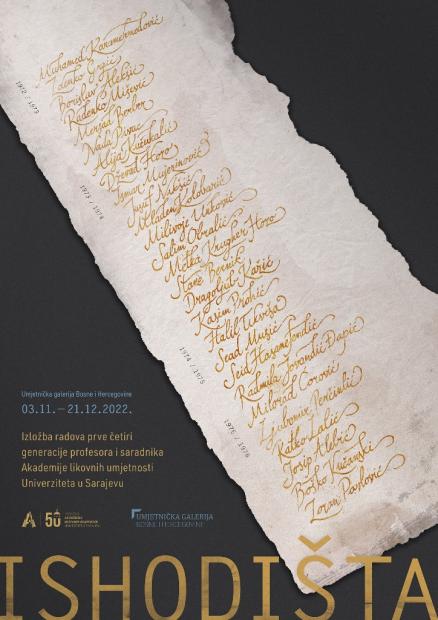 1972 / 1973
Muhamed Karamehmedović
Zdenko Grgić
Borislav Aleksić
Radenko Mišević
Mersad Berber
Nada Pivac
Alija Kučukalić
Dževad Hozo
1973 / 1974
Ismar Mujezinović
Mladen Kolobarić
Milivoje Unković
Salim Obralić
Metka Krugher Hozo
Stane Bernik
Dragoljub
Kasim Prohić
Halil Tikveša
1974 / 1975
Sead Musić
Seid Hasanefendić
Radmila Jovandić Đapić
Milorad Ćorović
1975 / 1976
Ljubomir Perčinlić
Ratko Lalić
Josip Alebić
Boško Kućanski
Zoran Pavlović
Umjetnička galerija Bosne i Hercegovine
03.11.—21.12.2022.
Izložba radova prve četiri
generacije profesora i saradnika
Akademije likovnih umjetnosti
Univerziteta u Sarajevu
50
UMJETNIČKA GALERIJA
BOSNE I HERCEGOVINE
ISHODIŠTA